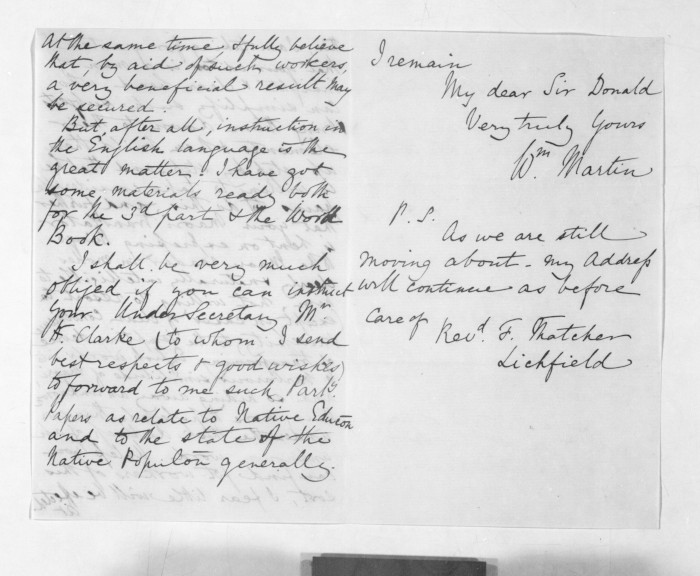 At the same time I fully believe
that, by aid of such workers,
a very beneficial result may
be secured.
But, after all, instruction in
the English language is the
great matter. I have got
some materials ready both
for the 3d part & the Word
Book.
I shall be very much
obliged if you can instruct
your Under Secretary Mr
H. Clarke (to whom I send
best respects & good wishes)
to forward to me such Parly
Papers as relate to Native Educon
and to the state of the
Native Populōn generally.
I remain
My dear Sir Donald
Very truly Yours
Wm Martin
P.S.
As we are still
moving about - my Address
will continue as before
care of
Revd. F. Thatcher
Lichfield